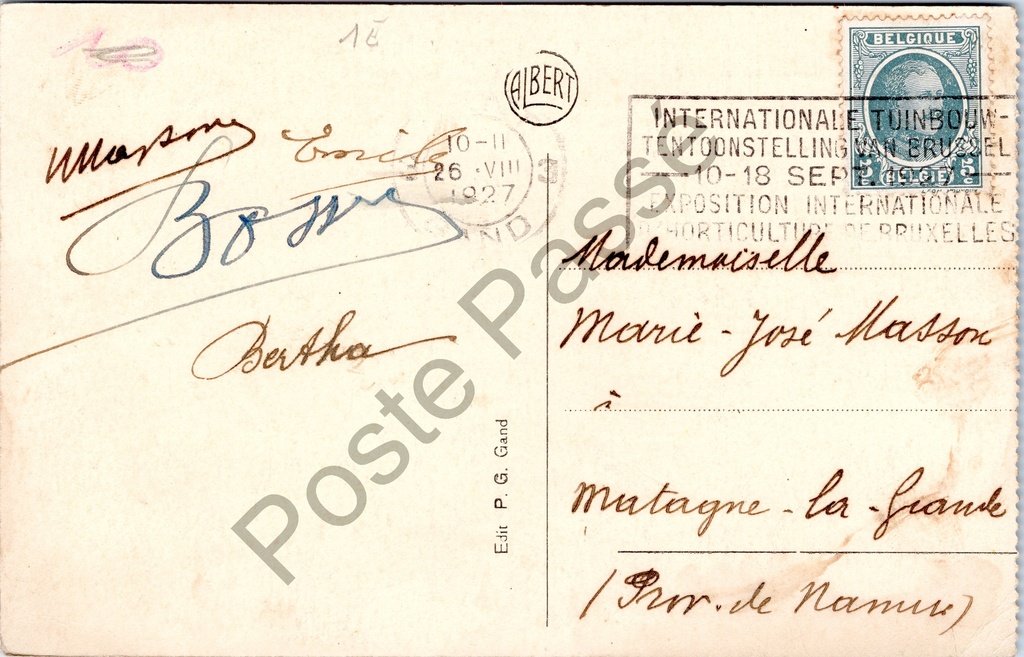 1E
ALBERT
BELGIQUE
5c 5c
10-11
26 VIII
1927
GAND
INTERNATIONALE TUINBOUW-
TENTOONSTELLING VAN BRUSSEL
10-18 SEPT. 1927
EXPOSITION INTERNATIONALE
D'HORTICULTURE DE BRUXELLES
Emile
Bertha
Mademoiselle
Marie-José Masson
à
Matagne-la-Grande
(Prov. de Namur)
Edit P. G. Gand
Poste Passé